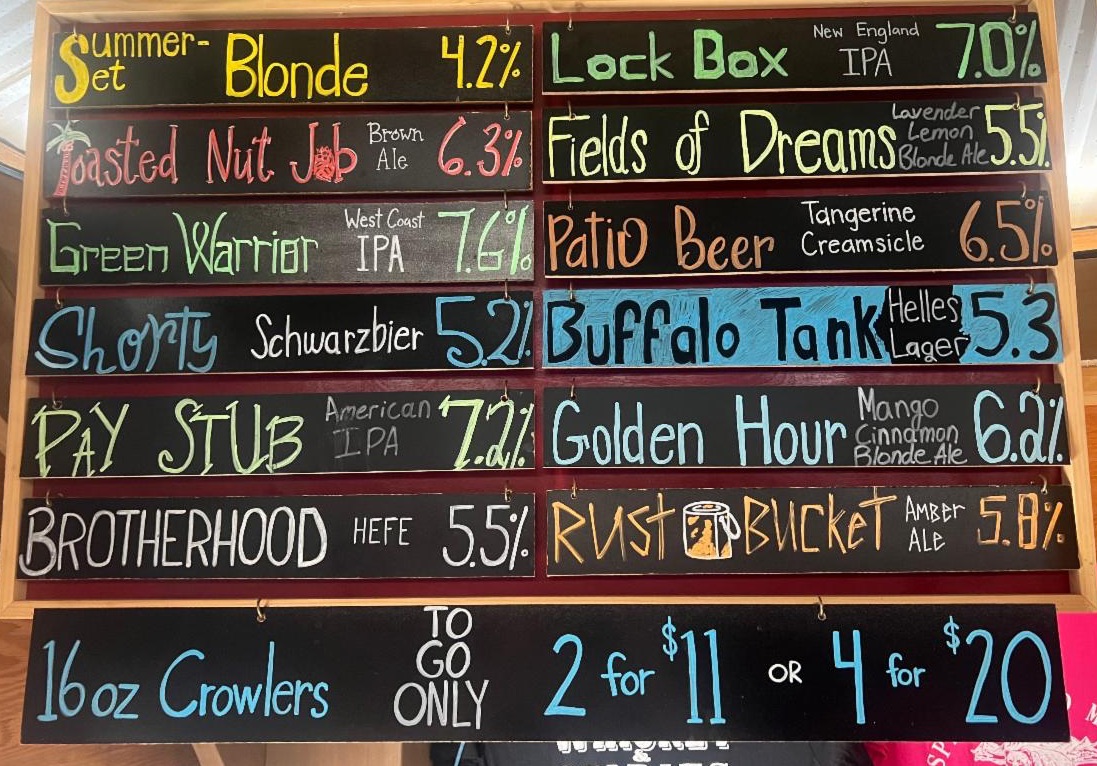 Summer-
Set Blonde 4.2%
Toasted Nut Job Brown
Ale 6.3%
Green Warrior West Coast
IPA 7.6%
Shorty Schwarzbier 5.2%
PAY STUB American
IPA 7.2%
BROTHERHOOD HEFE 5.5%
Lock Box New England
IPA 7.0%
Fields of Dreams Lavender
Lemon
Blonde Ale 5.5%
Patio Beer Tangerine
Creamsicle 6.5%
Buffalo Tank Helles
Lager 5.3
Golden Hour Mango
Cinnamon
Blonde Ale 6.2%
RUST BUCKET AMBER
ALE 5.8%
16oz Crowlers TO
GO
ONLY 2 for $11 OR 4 for $20